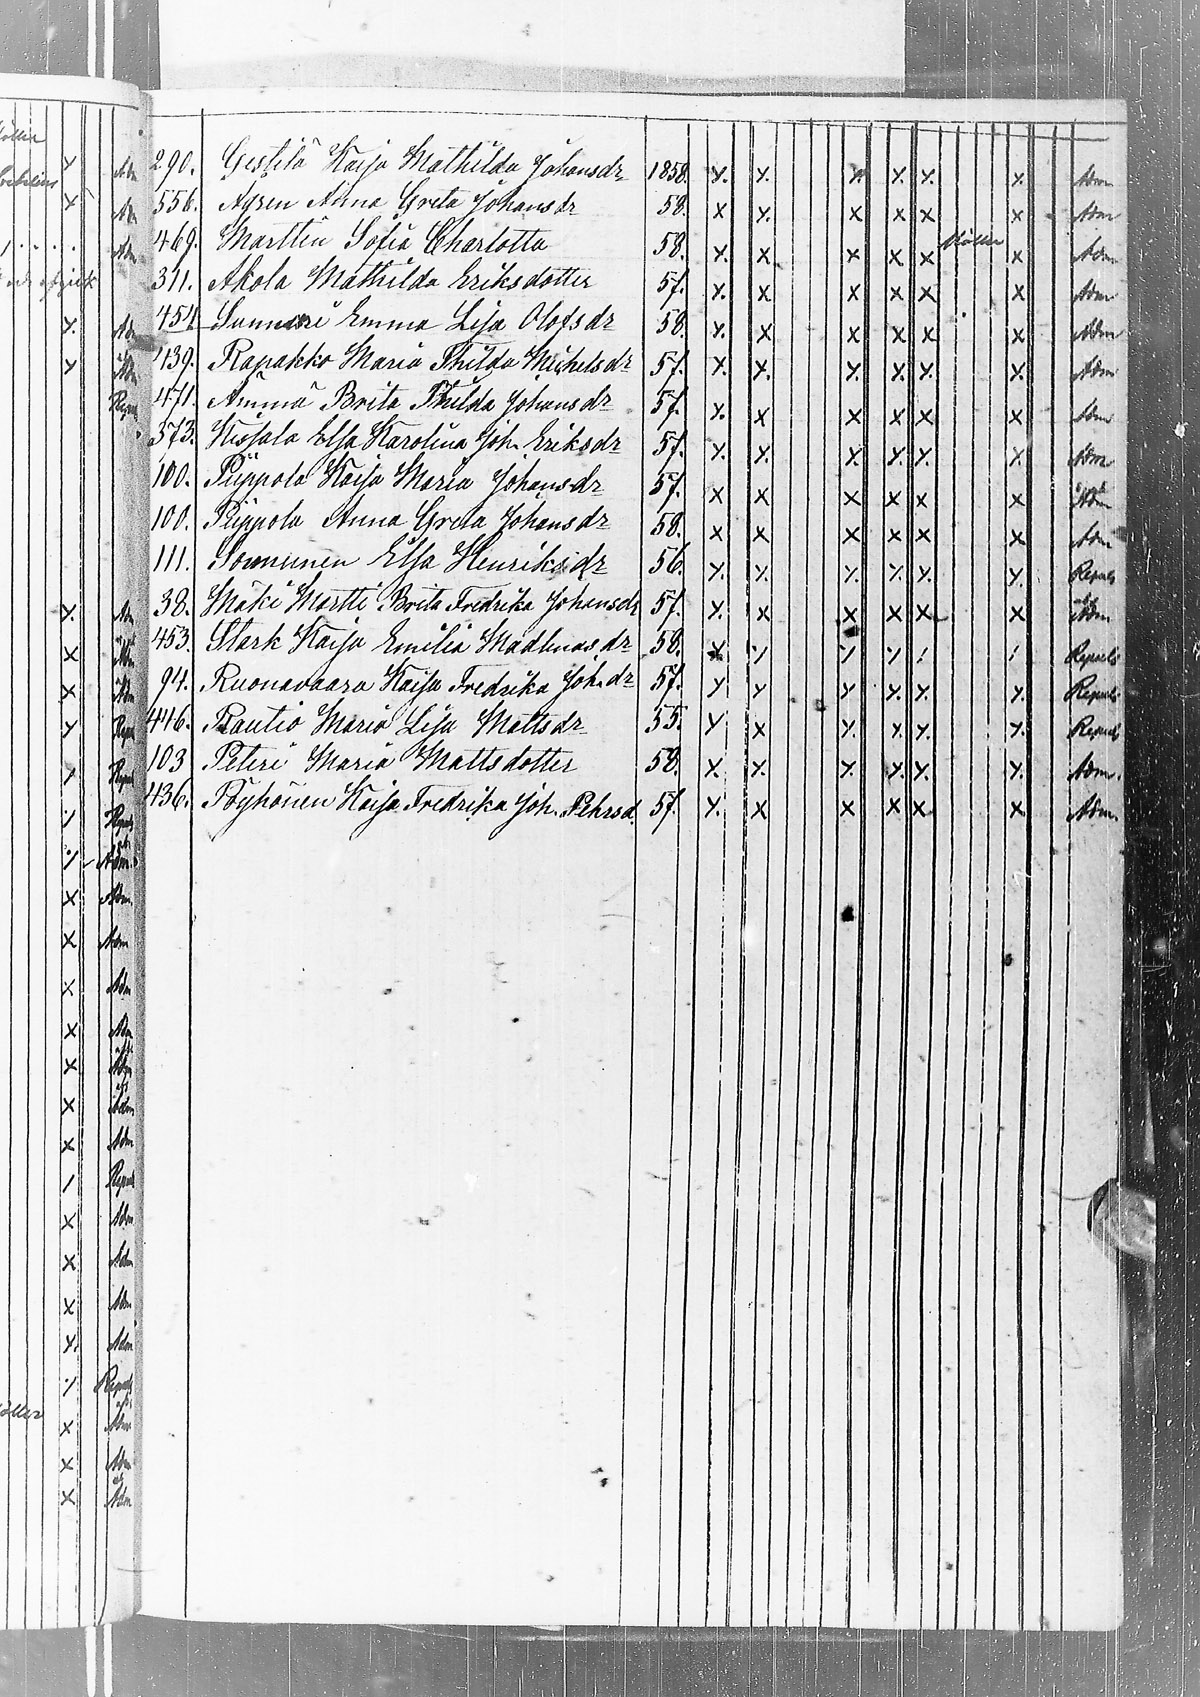 290. Gestilä Kaija Mathilda Johansdr 1858. x. x. x x. x. x. Adm
556. Agren Anna Greta Johansdr 58. x x. x x x x Adm
469. Marttin Sofia Charlotta 58. x. x x x x Möller x Adm
311. Ahola Mathilda Eriksdotter 57. x. x x x x x Adm
454. Sunnari Emma Lisa Olofsdr 58. x. x x x x x Adm
439. Rapakko Maria Thilda Michelsdr 57. x. x. x. x. x. x. Adm
471. Ämmä Brita Thilda Johansdr 57. x. x x x x x Adm
573. Elsa Karolina Joh. Eriksdr 57. x. x. x. x. x. x. Adm
100. Piippola Kaija Maria Johansdr 57. x x x x x x Adm
100. Piippola Anna Greta Johansdr 58. x x x x x x Adm
111. Elsa Henriksdr 56. x. x. x. x. x. x. Repuls
38. Mäki Martti Brita Fredrika Johansdr 57. x. x x x x x Adm
453. Stark Kaija Emilia Madlenasdr 58. x / / / / / Repuls
94. Ruonavaara Kaisa Fredrika Joh.dr 57. x x x. x. x. x. Repuls
446. Rautio Maria Lisa Mattsdr 55. x x x. x. x. x. Repuls
103 Peteri Maria Mattsdotter 58. x. x. x. x. x. x. Adm.
436. Pöyhönen Kaisa Fredrika Joh. Pehrsd. 57. x. x x x x x Adm.